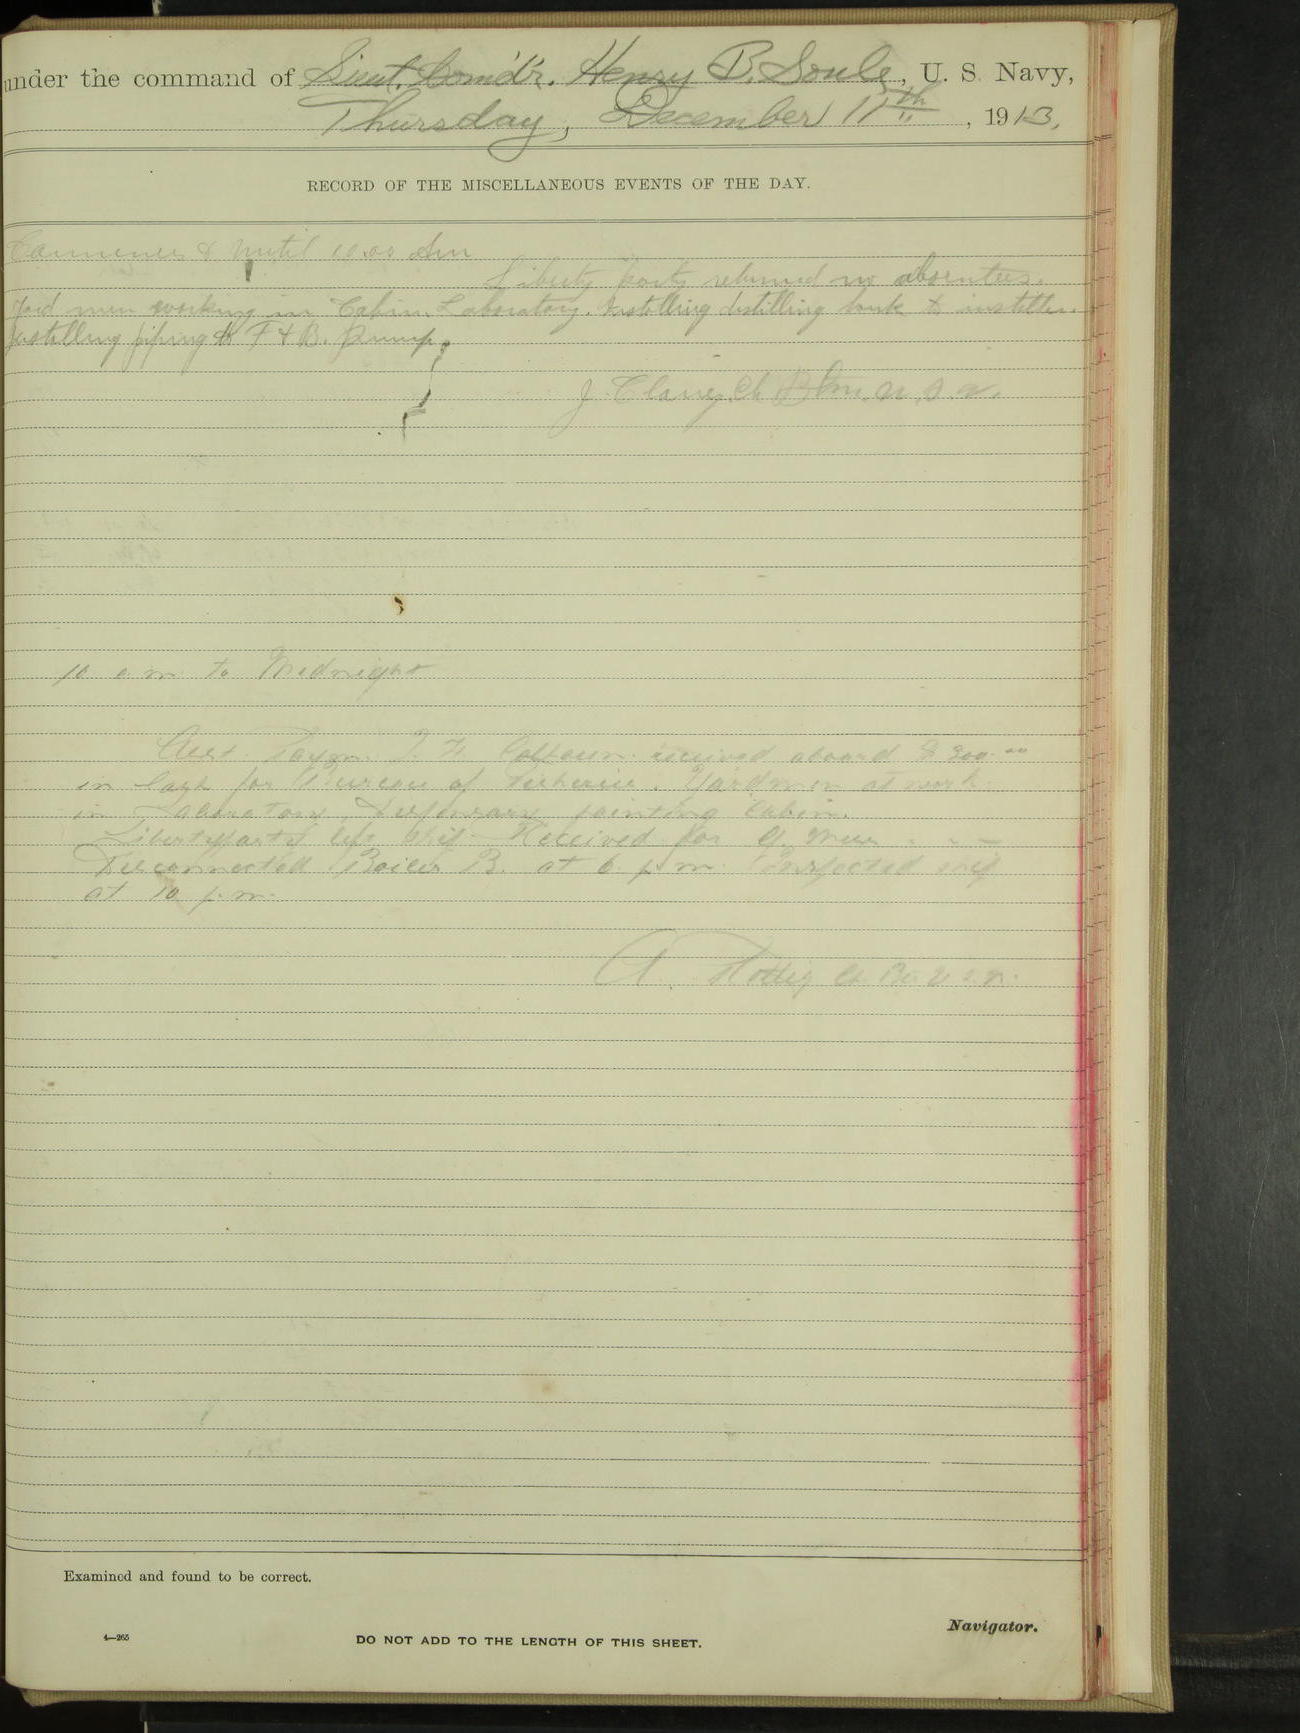 under the command of Lieut. Comd'r. Henry B. Soule, U. S. Navy,
Thursday, December 11th, 1913.
RECORD OF THE MISCELLANEOUS EVENTS OF THE DAY.
until 10.00 Am
Liberty party returned no absentees.
Yard men working in Cabin. Laboratory. Installing distilling tank
Installing piping to F & B. Pump.
J. Clancy, Ch B U.S.N.
10 a m to Midnight
Asst. Paym. received aboard
in Cash for Bureau of Fisheries. Yardmen at work
in Laboratory, Dispensary painting Cabin.
Liberty party left ship Received for G. Mess
Disconnected Boiler B. at 6 p m. Inspected ship
at 10 p. m.
A. U.S.N.
Examined and found to be correct.
Navigator.
4—265
DO NOT ADD TO THE LENGTH OF THIS SHEET.